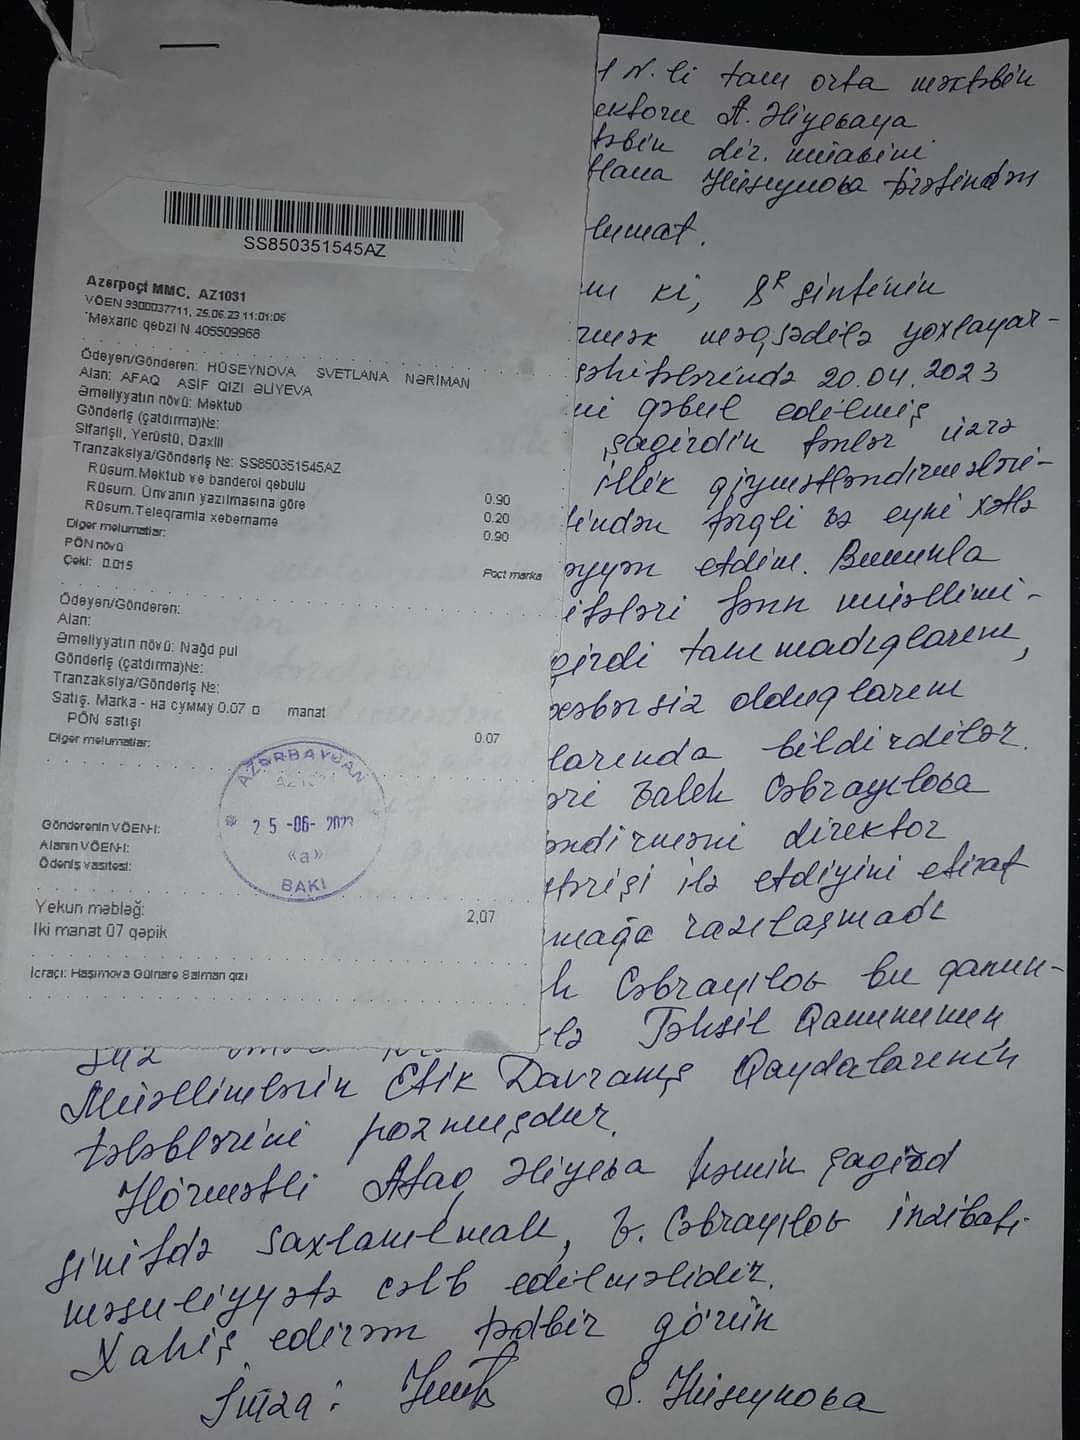 SS850351545AZ
Azərpoçt MMC, AZ1031
VÖEN 9900037711, 25.06.23 11:01:06
Məxaric qəbzi N 405509968
Ödəyən/Göndərən: HÜSEYNOVA SVETLANA NƏRİMAN
Alan: AFAQ ASİF QIZI ƏLİYEVA
Əməliyyatın növü: Məktub
Göndəriş (çatdırma)№:
Sifarişli, Yerüstü, Daxili
Tranzaksiya/Göndəriş №: SS850351545AZ
Rüsum.Məktub və banderol qəbulu 0.90
Rüsum. Ünvanın yazılmasına görə 0.20
Rüsum.Teleqramla xəbərnamə 0.90
Digər məlumatlar:
PÖN növü Poçt marka
Çəki: 0.015
Ödəyən/Göndərən:
Alan:
Əməliyyatın növü: Nağd pul
Göndəriş (çatdırma)№:
Tranzaksiya/Göndəriş №:
Satış. Marka - на сумму 0.07 manat
PÖN satışı 0.07
Digər məlumatlar:
AZƏRBAYCAN
25-06-2023
«a»
BAKI
Göndərənin VÖEN-i:
Alanın VÖEN-i:
Ödəniş vasitəsi:
Yekun məbləğ: 2,07
İki manat 07 qəpik
İcraçı: Haşımova Gülnarə Salman qızı
1 N-li tam orta məktəbin
ektoru A. Əliyevaya
təbin dir. müavini
tlana Hüseynova tərəfindən
lumat.
ki, 8ᴿ sinfinin
rmək məqsədilə yoxlayar-
səhifələrində 20.04.2023
ni qəbul edilmiş
şagirdin fənlər üzrə
illik qiymətləndirmələri-
indən fərqli və eyni xətlə
əyyən etdim. Bununla
ifələri fənn müəllimi-
girdi tanımadıqlarını,
xəbərsiz olduqlarını
larında bildirdilər.
əri Valeh Cəbrayılova
əndirməni direktor
tərişi ilə etdiyini etiraf
mağa razılaşmadı
h Cəbrayılov bu qanun-
suz ilə Təhsil Qanununun,
Müəllimlərin Etik Davranış Qaydalarının
tələblərini pozmuşdur.
Hörmətli Afaq Əliyeva həmin şagird
sinifdə saxlanılmalı, V. Cəbrayılov inzibati
məsuliyyətə cəlb edilməlidir.
Xahiş edirəm tədbir görün
İmza: S. Hüseynova